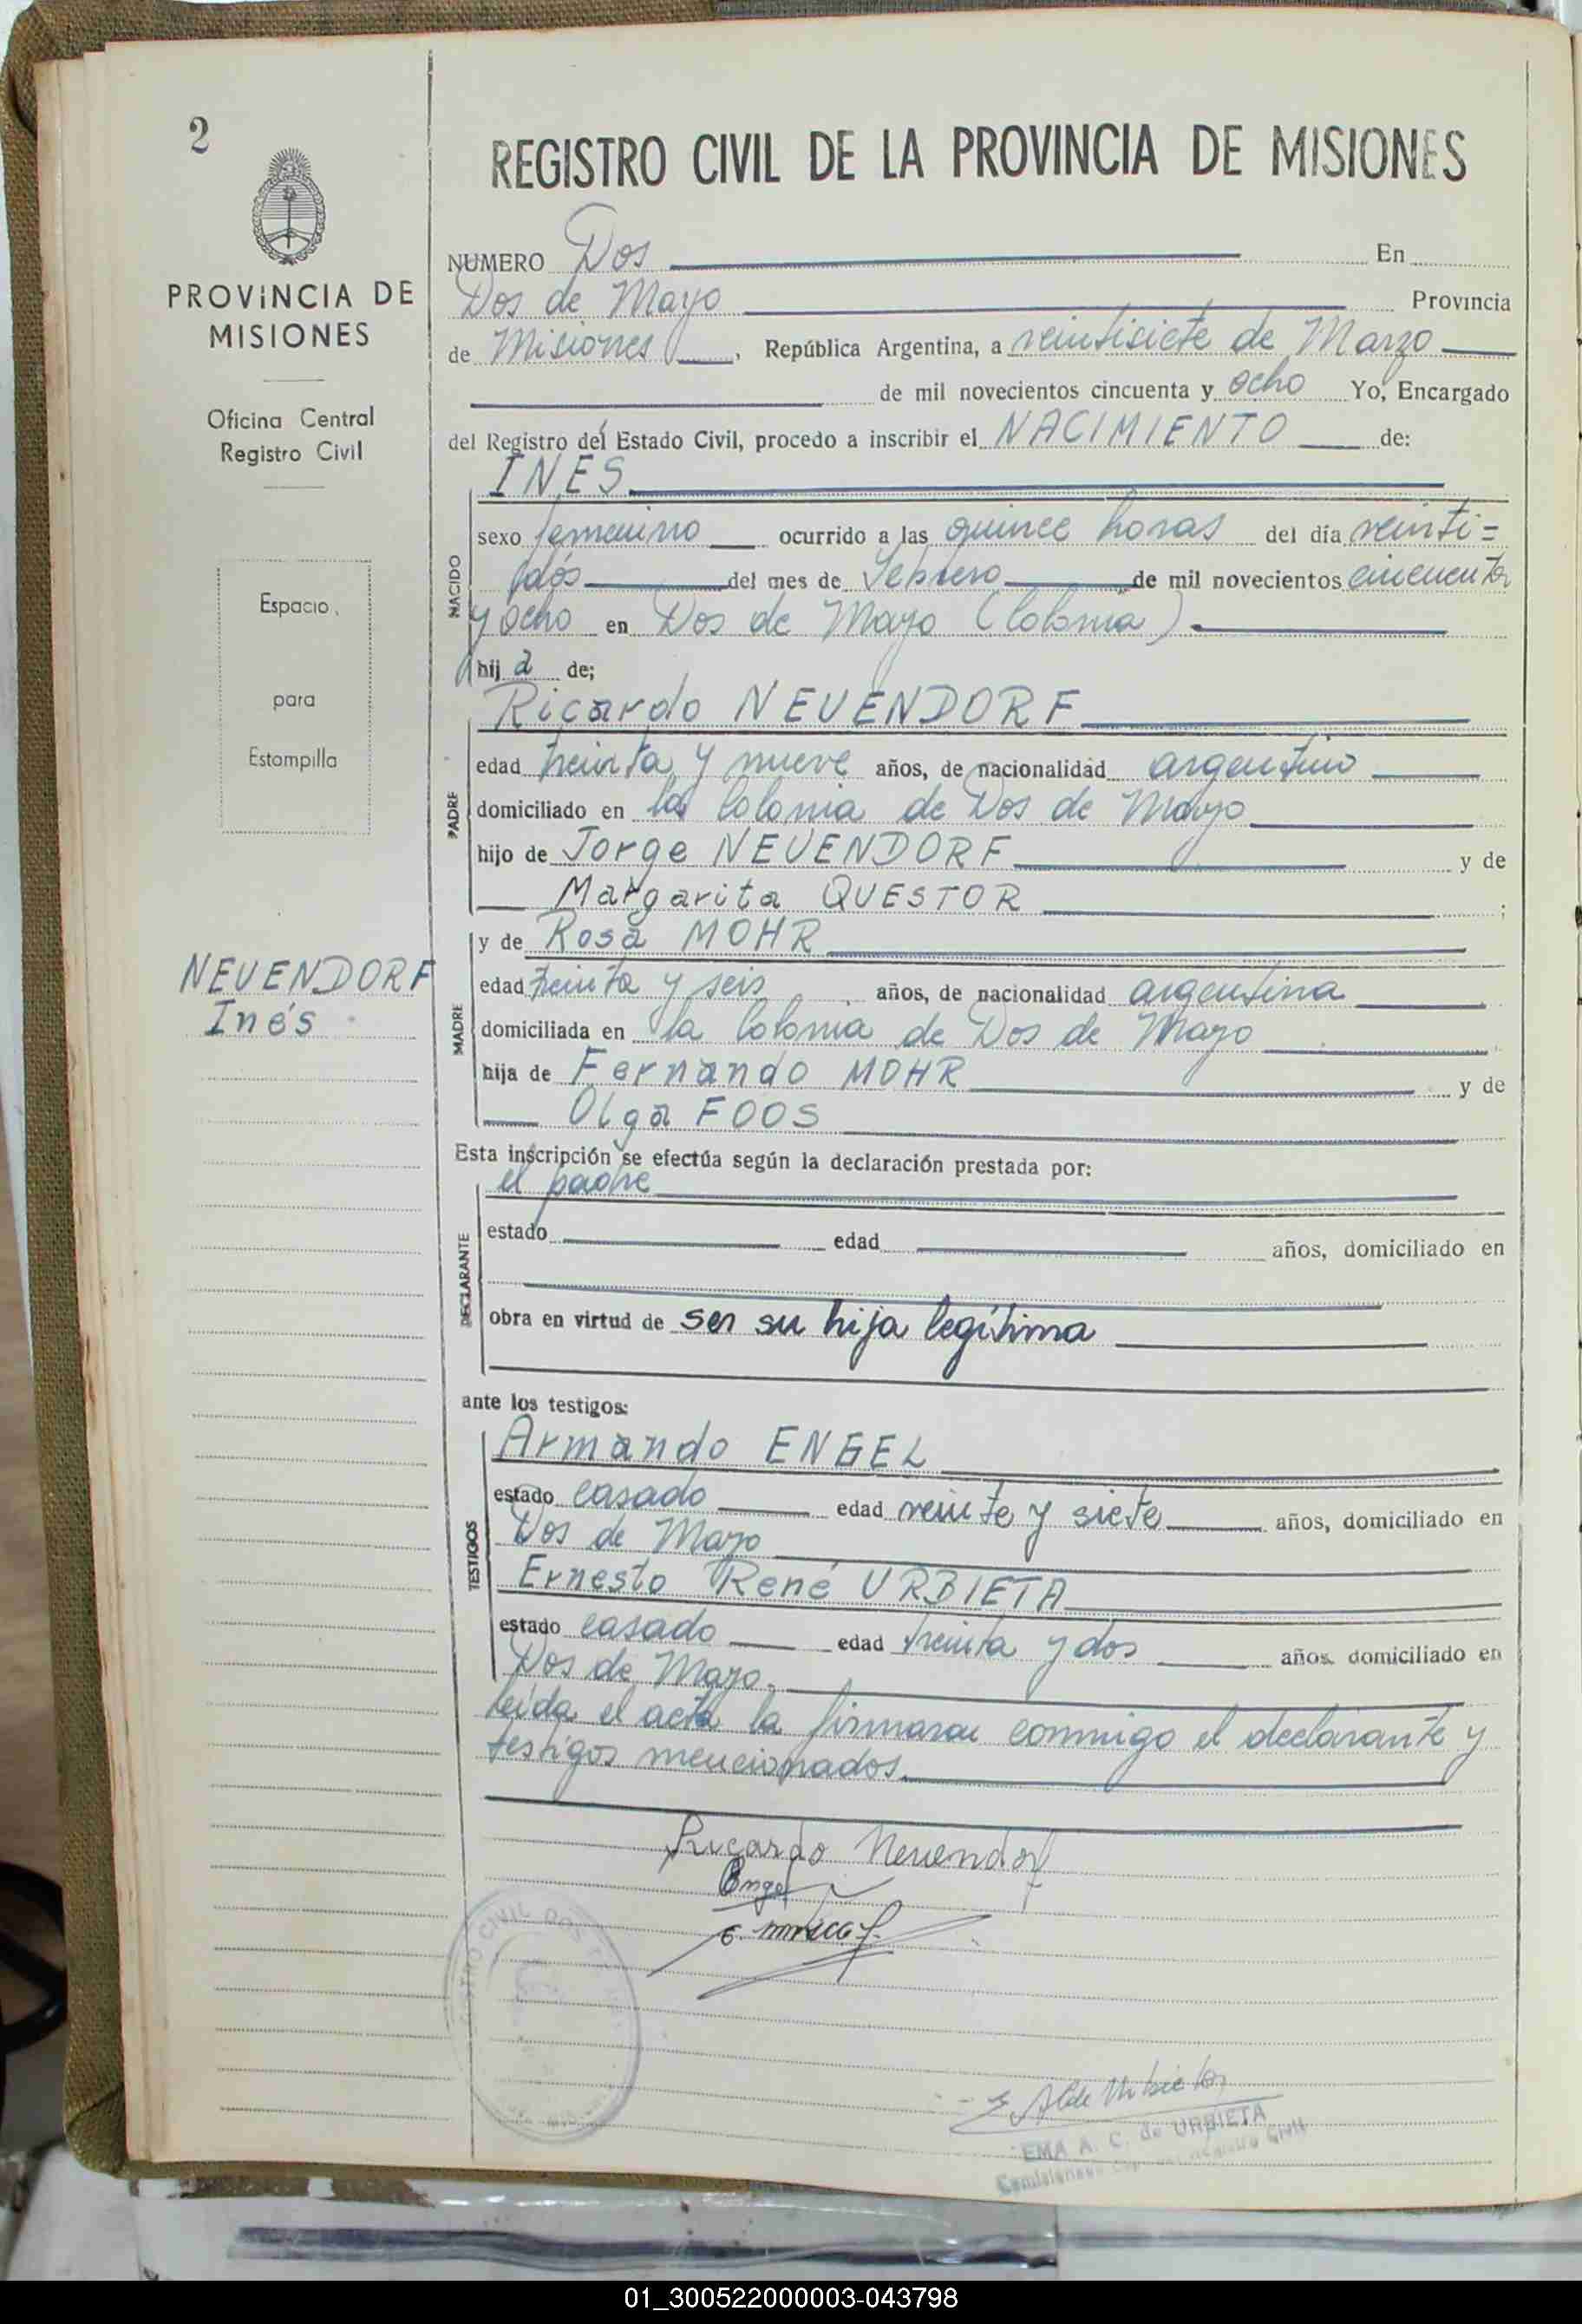 2
PROVINCIA DE
MISIONES
Oficina Central
Registro Civil
Espacio
para
Estampilla
NEUENDORF
Inés
REGISTRO CIVIL DE LA PROVINCIA DE MISIONES
NUMERO Dos En
Dos de Mayo Provincia
de Misiones, República Argentina, a veintisiete de Marzo
de mil novecientos cincuenta y ocho Yo, Encargado
del Registro del Estado Civil, procedo a inscribir el NACIMIENTO de:
INES
NACIDO
sexo femenino ocurrido a las quince horas del día veinti=
dós del mes de Febrero de mil novecientos cincuenta
y ocho en Dos de Mayo (Colonia)
hija de;
Ricardo NEUENDORF
PADRE
edad treinta y nueve años, de nacionalidad argentino
domiciliado en la Colonia de Dos de Mayo
hijo de Jorge NEUENDORF y de
Margarita QUESTOR ;
y de Rosa MOHR
MADRE
edad treinta y seis años, de nacionalidad argentina
domiciliada en la Colonia de Dos de Mayo
hija de Fernando MOHR y de
Olga FOOS
Esta inscripción se efectúa según la declaración prestada por:
el padre
DECLARANTE
estado edad años, domiciliado en
obra en virtud de ser su hija legítima
ante los testigos:
Armando ENGEL
TESTIGOS
estado casado edad veinte y siete años, domiciliado en
Dos de Mayo
Ernesto René URBIETA
estado casado edad treinta y dos años domiciliado en
Dos de Mayo.
Leída el acta la firmaron conmigo el declarante y
testigos mencionados.
Ricardo Neuendorf
Engel
CIVIL DOS
EMA A. C. de URBIETA
Registro Civil
01_300522000003-043798